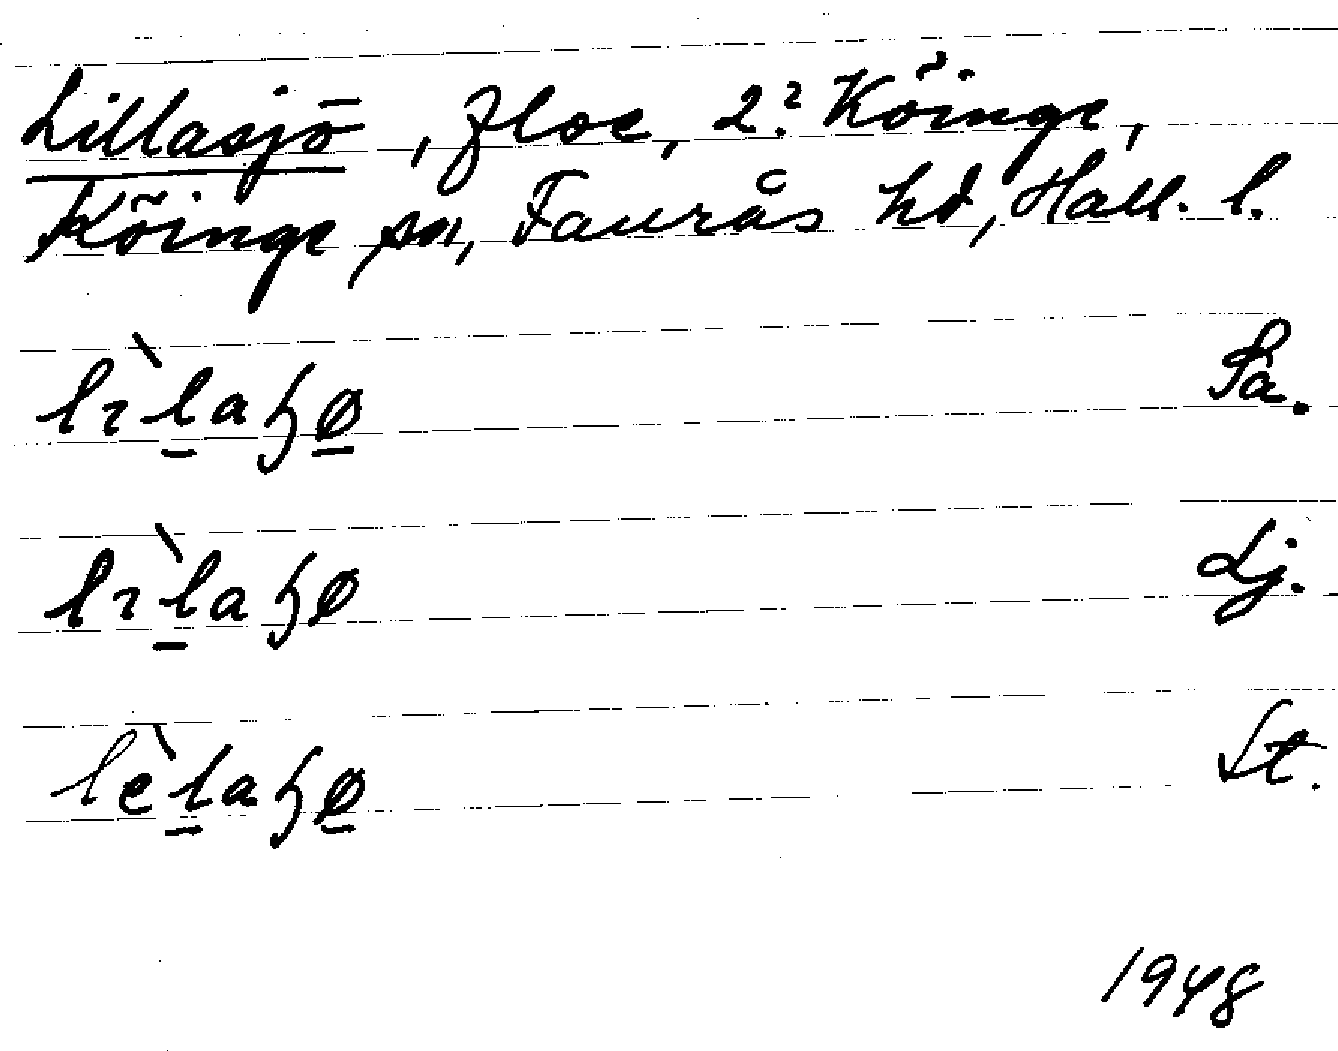 Lillasjö, floe, 2.? Köinge,
Köinge sn, Faurås hd, Hall. l.
lɩ̀laɧø Så.
lɩ̀laɧø Lj.
lèlaɧø St.
1948